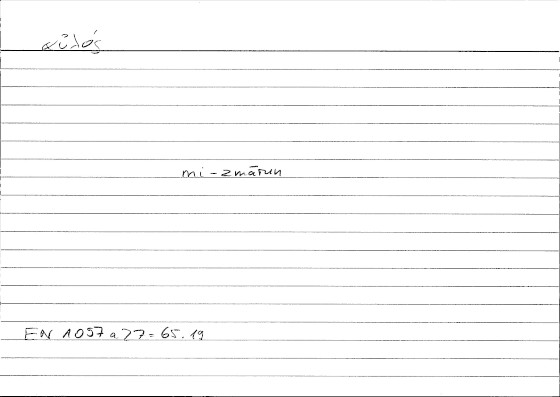 αὐλός
mi-zmārun
EN 1057 a 27 = 65.19